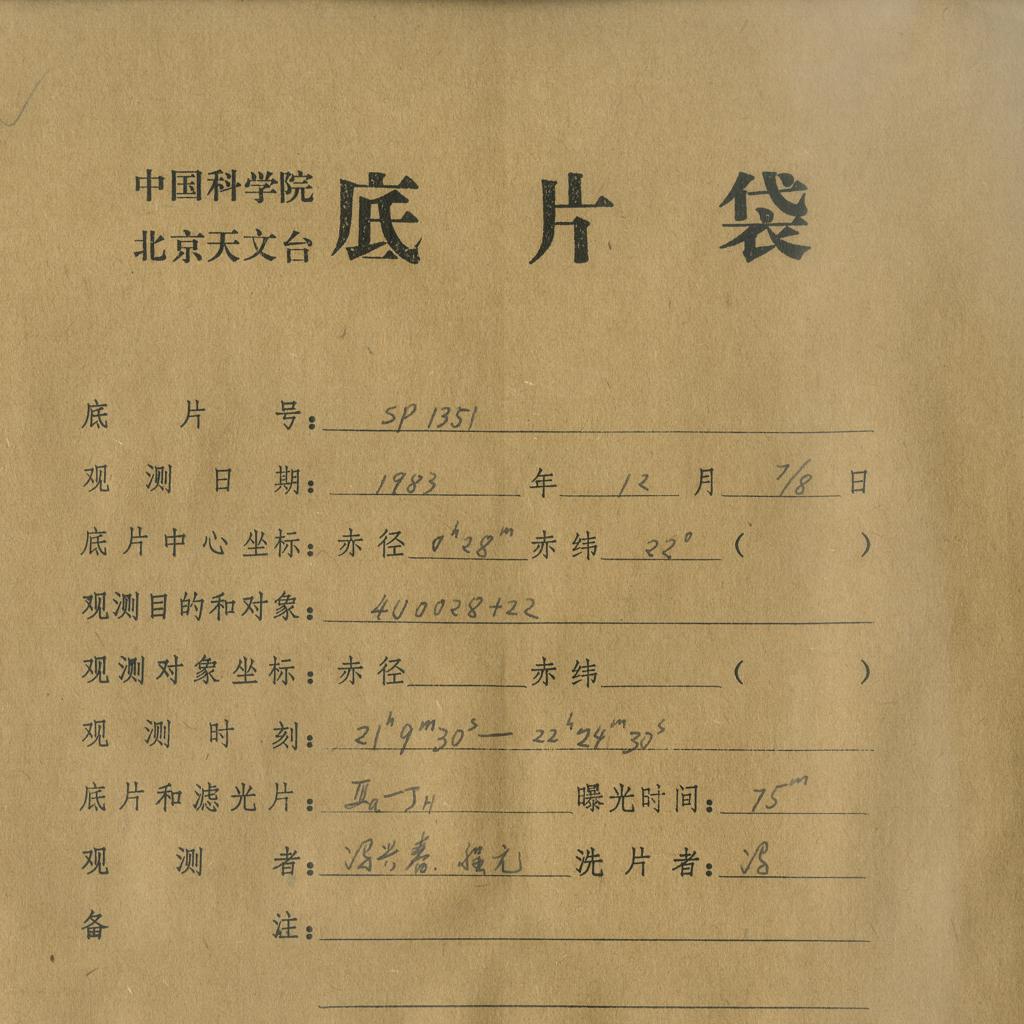 中国科学院
北京天文台
底片袋
底片号: SP 1351
观测日期: 1983 年 12 月 7/8 日
底片中心坐标: 赤径 0ʰ28ᵐ 赤纬 22° ( )
观测目的和对象: 4U0028+22
观测对象坐标: 赤径 赤纬 ( )
观测时刻: 21ʰ9ᵐ30ˢ — 22ʰ24ᵐ30ˢ
底片和滤光片: IIa-JH 曝光时间: 75ᵐ
观测者: 冯兴春. 元 洗片者: 冯
备注: